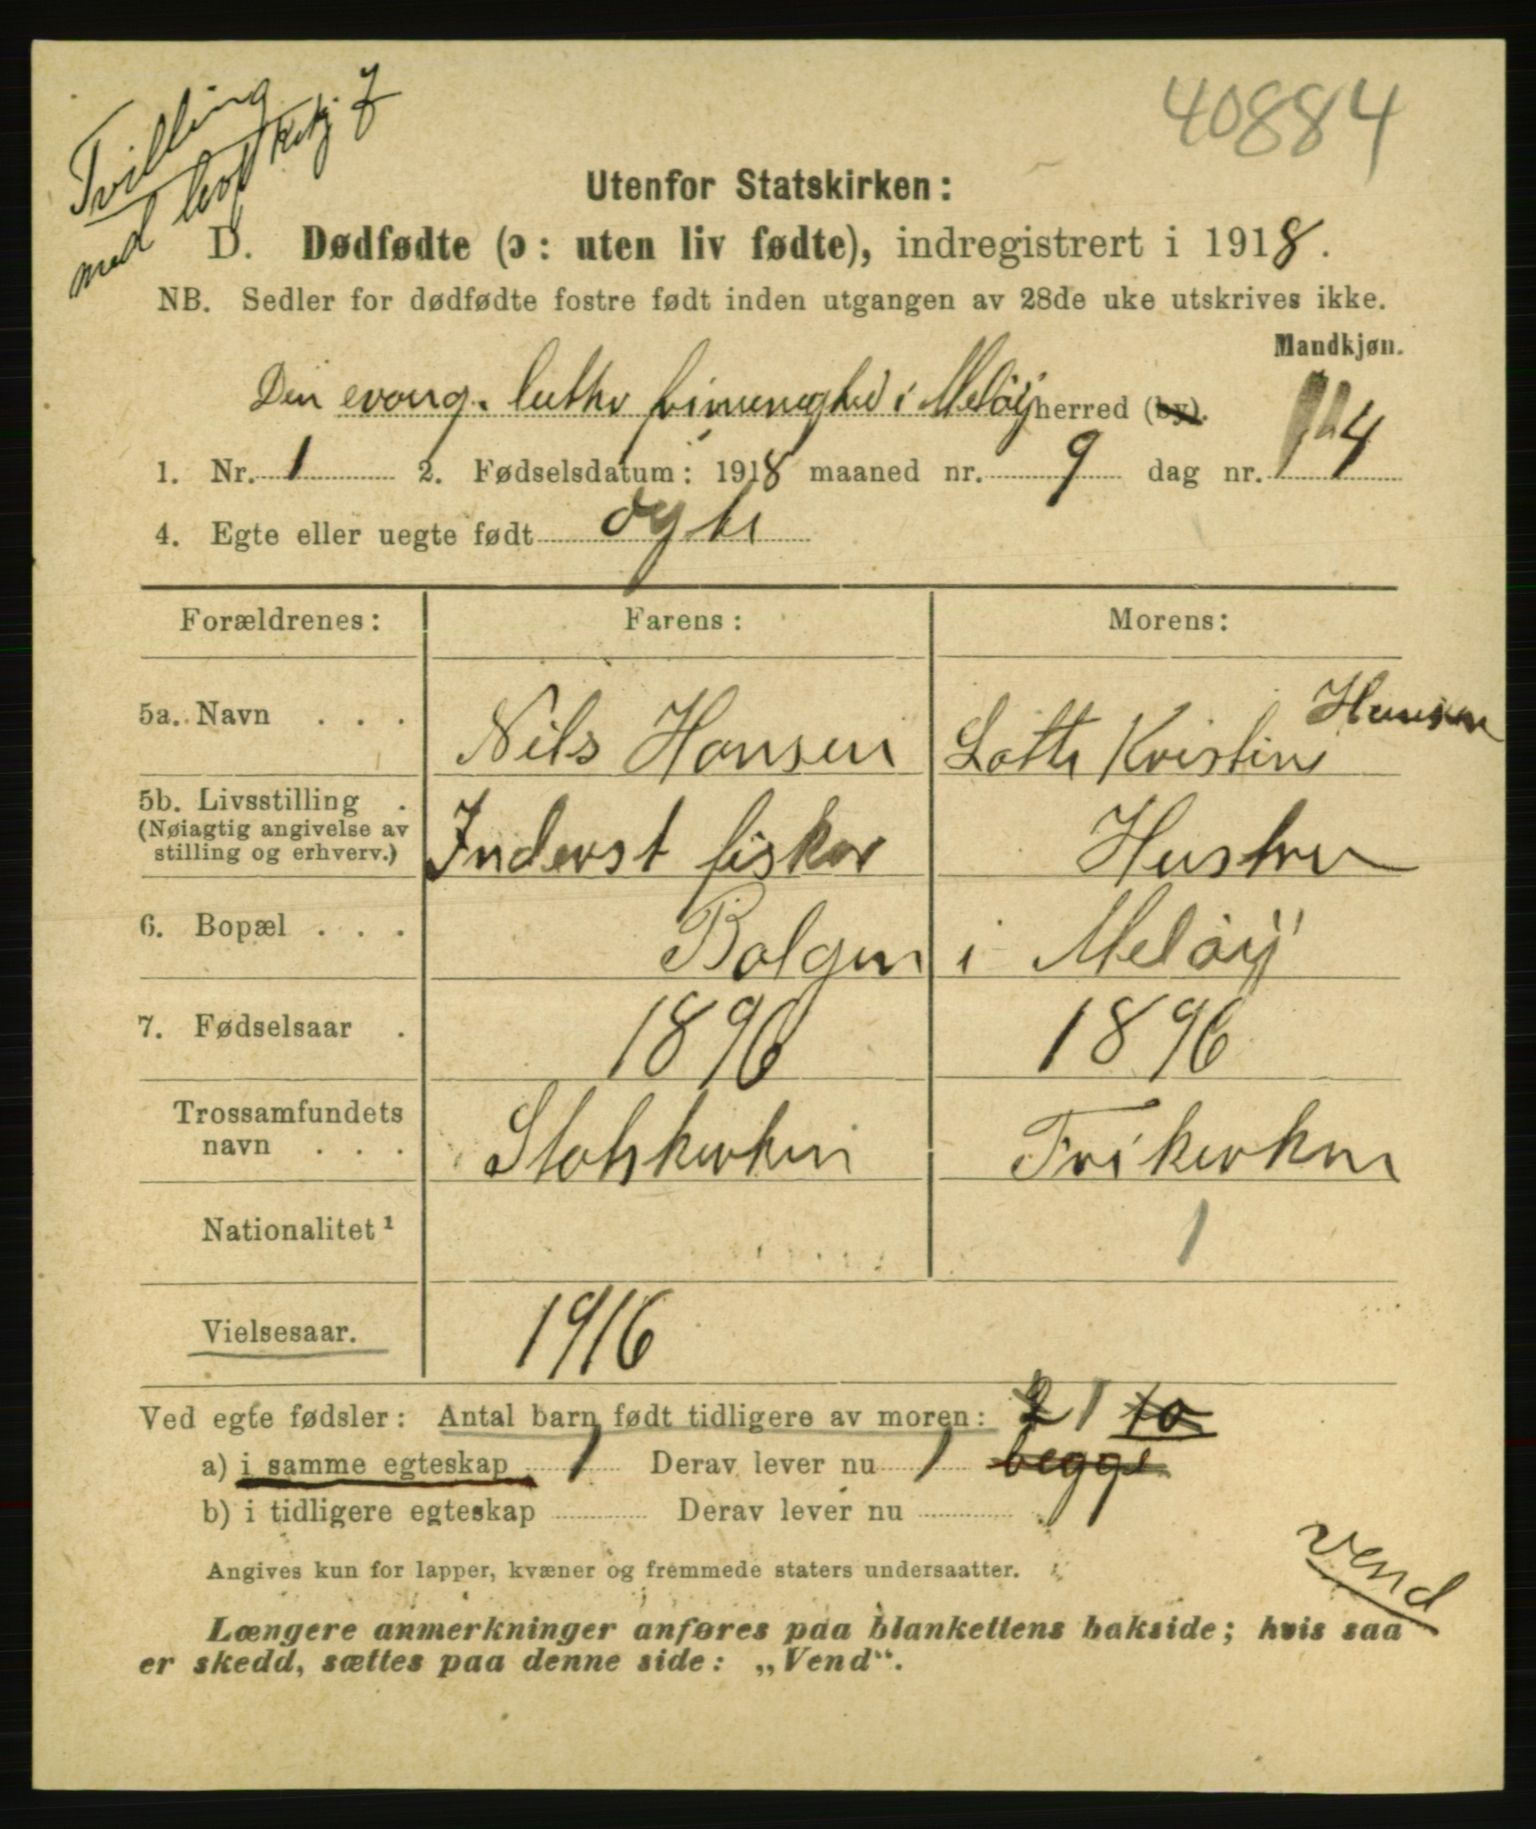 Tvilling
med levf kvkj Z
40884
Utenfor Statskirken:
D. Dødfødte (ɔ: uten liv fødte), indregistrert i 1918.
NB. Sedler for dødfødte fostre født inden utgangen av 28de uke utskrives ikke.
Mandkjøn.
Den evang. luthr frimenighed i Meløy herred (by).
1. Nr. 1 2. Fødselsdatum: 1918 maaned nr. 9 dag nr. 14
4. Egte eller uegte født egte
Forældrenes: Farens: Morens:
5a. Navn . . . Nils Hansen Lotte Kristine Hansen
5b. Livsstilling . Inderst fisker Hustru
(Nøiagtig angivelse av
stilling og erhverv.)
6. Bopæl . . . Bolgen i Meløy
7. Fødselsaar . 1896 1896
Trossamfundets
navn . . . Statskirken Frikirken
Nationalitet¹ 1
Vielsesaar. 1916
Ved egte fødsler: Antal barn født tidligere av moren: 2 1 to
a) i samme egteskap 1 Derav lever nu 1 begge
b) i tidligere egteskap Derav lever nu
Angives kun for lapper, kvæner og fremmede staters undersaatter.
Vend
Længere anmerkninger anføres paa blankettens bakside; hvis saa
er skedd, sættes paa denne side: „Vend“.